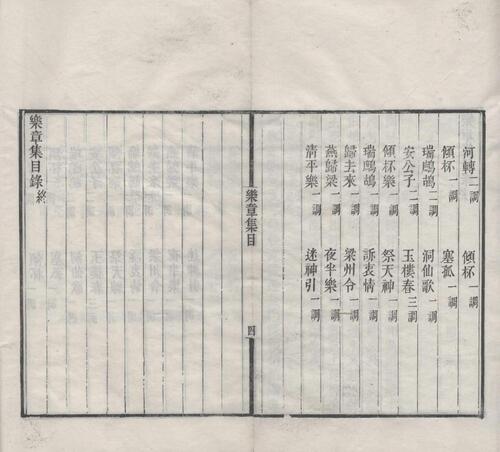 河轉二調　傾杯一調
傾杯一調　塞孤一調
瑞鷓鴣二調　洞仙歌一調
安公子二調　玉樓春三調
傾杯樂一調　祭天神一調
瑞鷓鴣一調　訴衷情一調
歸去來一調　梁州令一調
燕歸梁一調　夜半樂一調
清平樂一調　迷神引一調
樂章集目　四
樂章集目錄終